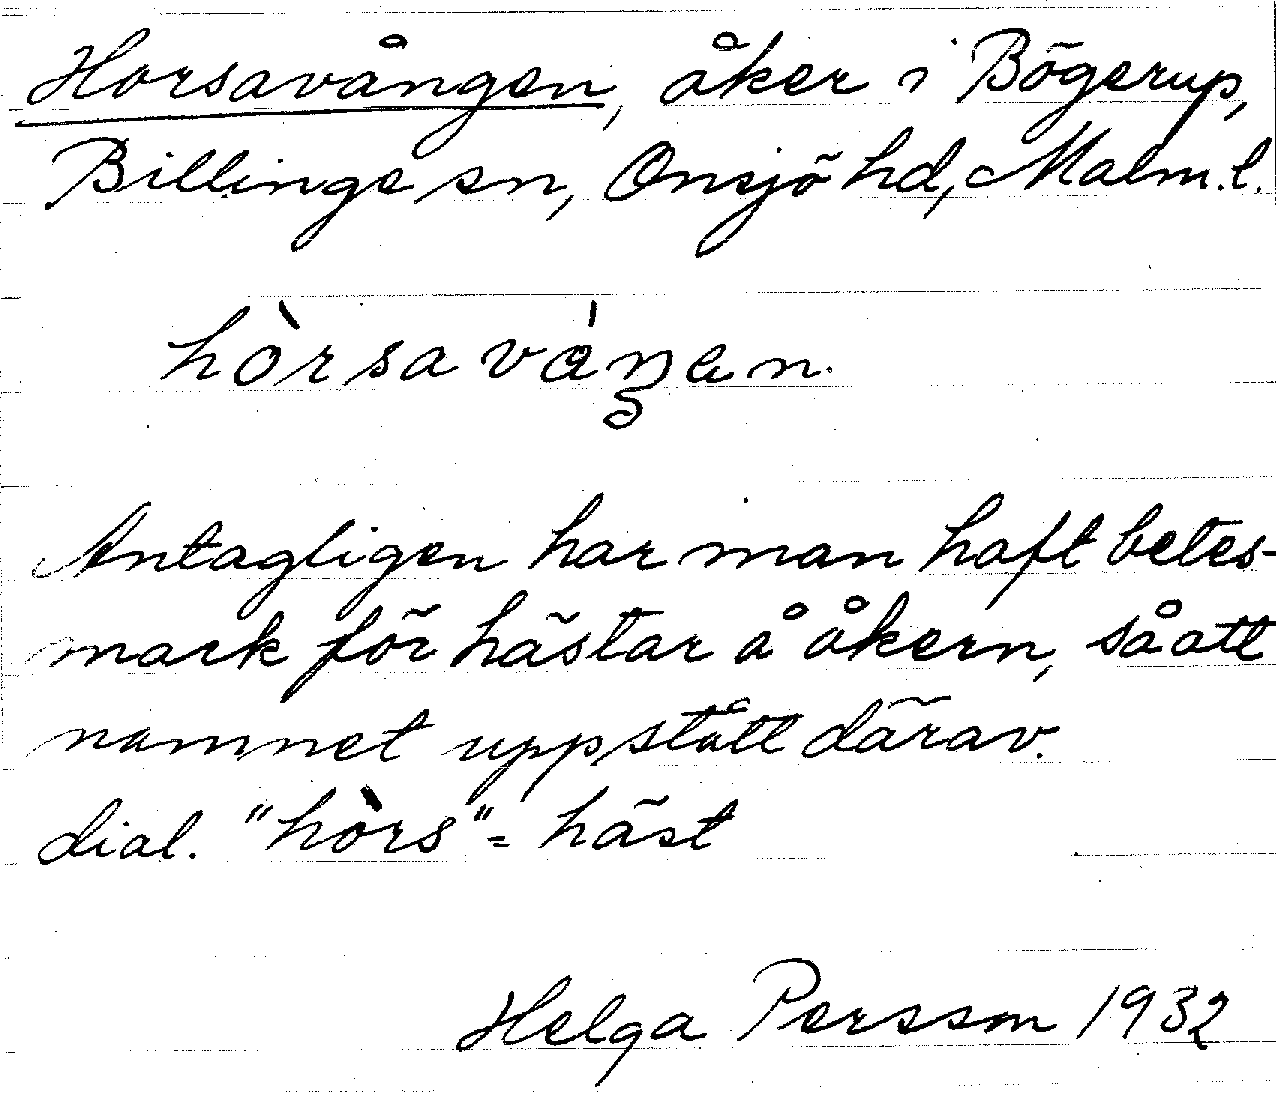 Horsavången, åker i Bögerup,
Billinge sn, Onsjö hd, Malm.l.
hòrsavàŋen.
Antagligen har man haft betes-
mark för hästar å åkern, så att
namnet uppstått därav.
dial. "hòrs" = häst
Helga Persson 1932